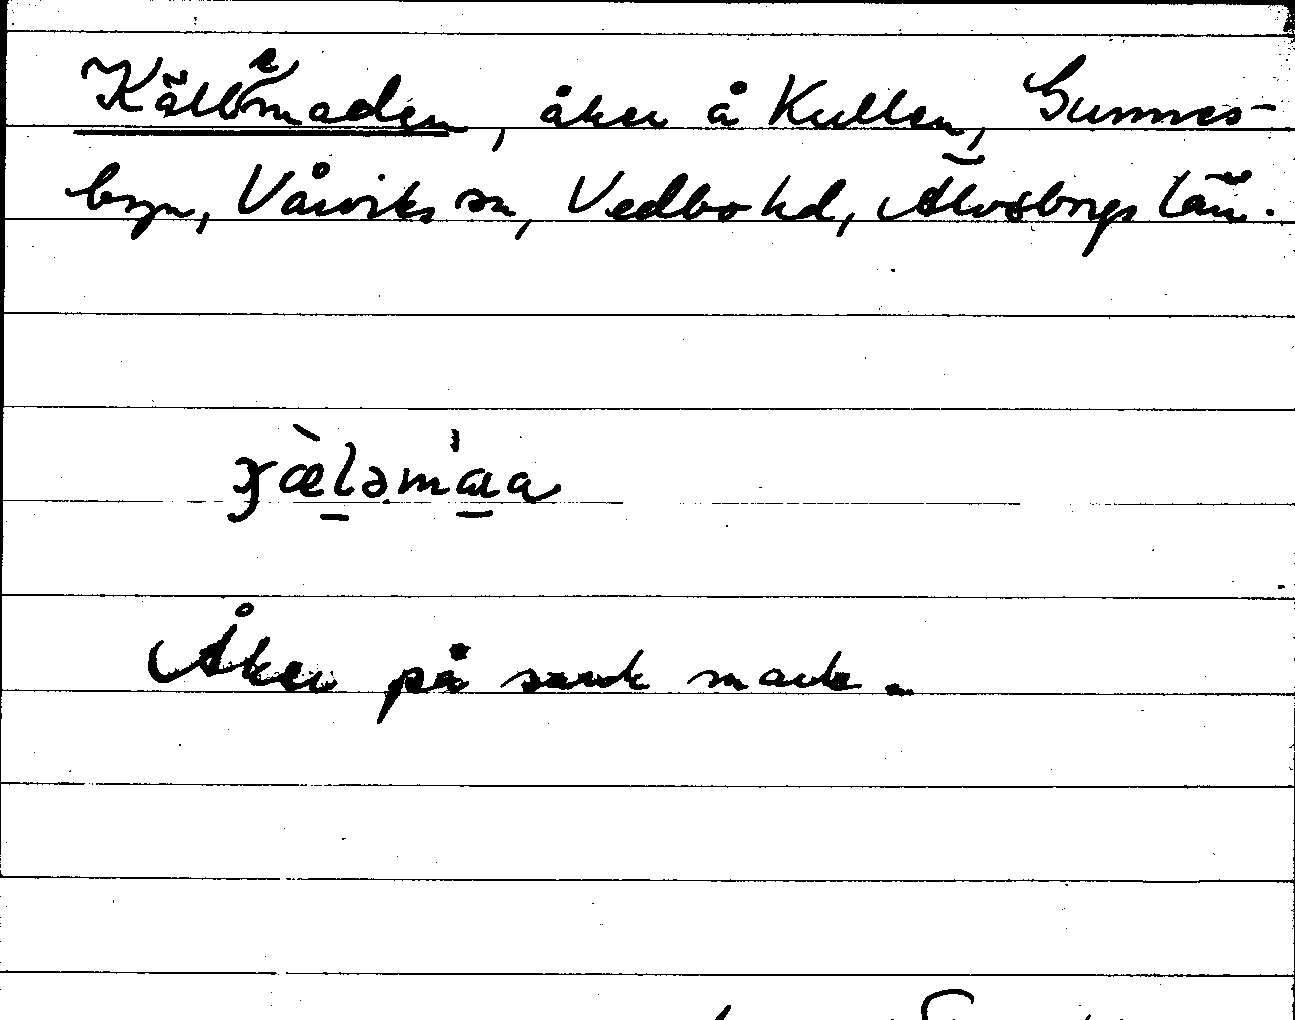 Källemaden, åker å Kullen, Gunnes-
byn, Vårviks sn, Vedbo hd, Älvsborgs län.
Åker på sank mark.